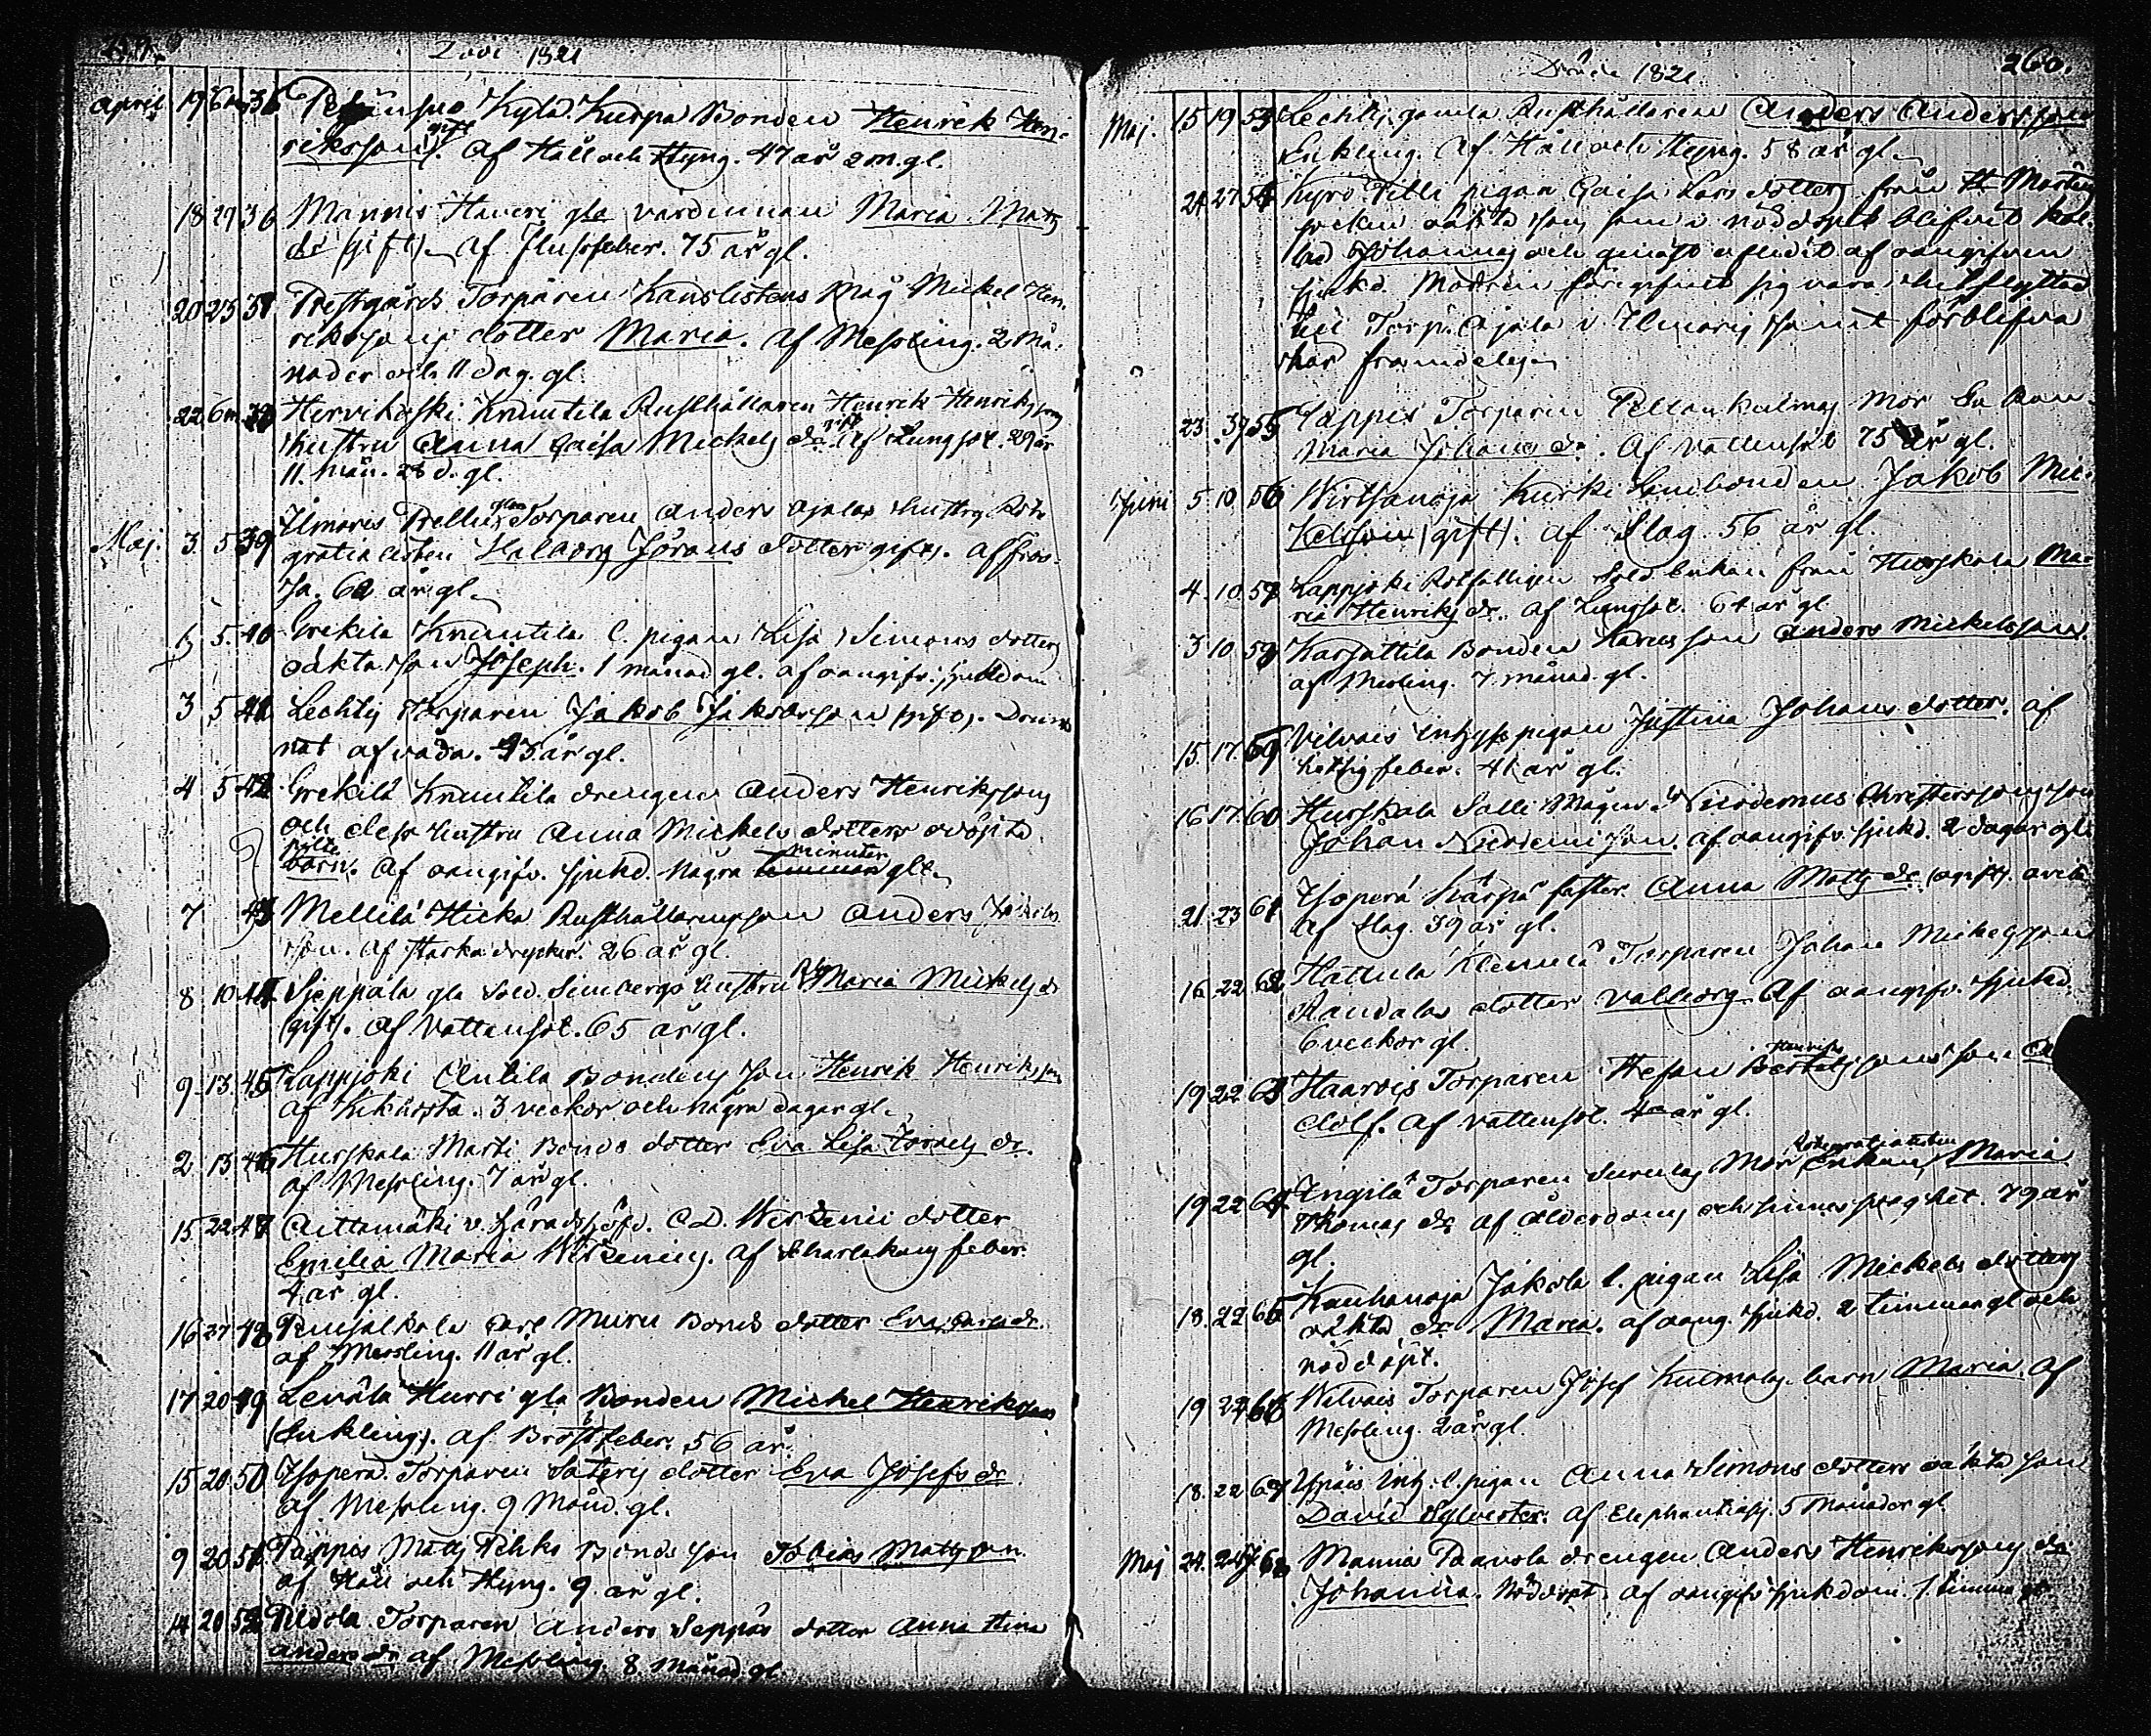 Död 1821
April 19 6 m 36 Kyla Kurpa Bonden Henrik Hen-
riksson gift. Af Håll och Styng. 47 år 2 m. gl.
18 29 36 Mannis Haveri gla värdinnan Maria Matts
dr (gift). Af Flussfeber. 75 år gl.
20 25 37 Prestgårds Torparen Kanslistens Måg Mickel Hen-
rikssons dotter Maria. Af Messling. 2 Må-
nader och 11 dag. gl.
22 6 m 38 Hervikoski Knuutila Rusthållaren Henrik Henriksson
hustru Anna Caisa Mickels dr gift Af Lungsot. 29 år
11 mån. 28 d. gl.
Ilmaris Prellus gla Torparen Anders Ajalas hustru Rote
Maj. 3. 5 39 gratialisten Walborg Jörans dotter gift). Af fros-
sa. 62 år gl.
5 5. 40 Grekilä Knuutila l. pigan Lisa Simons dotters
oäkta son Joseph. 1 månad gl. af oangifv. sjukdom
3 5 41 Lechtis Torparen Jakob Jakobsson (gift). Drunk-
nat af våda. 43 år gl.
4 5 42 Grekilä Knuutila drengen Anders Henrikssons
och dess hustru Anna Mickels dotters odöpta
barn. Af oangifv. sjukd. Några minuter glt.
7 43 Mellilä Hicka Rusthållarens son Anders
son. Af starka drycker. 26 år gl.
8 10 44 Seppälä gla Sold. Simbergs hustru Maria Mickels d
(gift). Af Vattensot. 65 år gl.
9. 13. 45 Lappjoki Antila Bondens son Henrik Henriksson
af Kikhosta. 3 veckor och några dagar gl.
2 13. 46 Hurskala Marti Bonds dotter Eva Lisa dr.
af Messling. 7 år gl.
15 22 47 Aittamäki v. Häradshöfd. C.D. Wirzenii dotter
Emilia Maria Wirzenius. Af Skarlakans feber.
4 år gl.
16 27 48 Muru Bonds dotter Eva dr.
af Messling. 11 år gl.
17 20 49 Levälä Hurri gla Bonden Mickel Henriksson
(Enkling). af Bröstfeber. 56 år.
15 20 50 Isoperä Torparen Säteris dotter Eva Josefs dr
af Messling. 9 Månd. gl.
9 20 51 Pappis Matts Pihko Bonds son Tobias Mattsson.
af Håll och Styng. 9 år gl.
14 20 52 Torparen Anders Seppäs dotter Anna Stina
Anders dr af Messling 8 Månad. gl.
Döde 1821 260.
Maj. 15 19 53 Lechtis gamla Rusthållaren Anders Andersson
Enkling. Af Håll och Styng. 58 år gl.
24 27 54 Kyrö Pilli pigan Caisa Lars dotters från St Mårtens
socken oäkta son som i nöddopet blifvit kal-
lad Johannes och genast aflidit af oangifven
sjukd. Modren föregifvit sig vara hitflyttad
till Torp. Ajala i Ilmaris samt förblifva
här framdeles
23. 39 55 Pappis Torparen Pellonkulmas Mor En kan
Maria Johans dr. Af Vattensot 75 år gl.
Juni 5. 10. 56 Wirtsanoja Kurki Bonden Jakob Mic-
kelsson (gift). af Slag. 56 år gl.
4. 10. 57 Lappjoki Rotfattigen Sold. Enkan från Hurskala Ma-
ria Henriks dr. af Lungsot. 64 år gl.
3 10. 58 Karjattila Bonden son Anders Mickelsson.
af Messling. 7 månad. gl.
15. 17. 59 Vilvais inhyses pigan Justina Johans dotter. af
hetsig feber. 41 år gl.
16 17. 60 Hurskala Salli Mågen Nicodemus Christerssons son
Johan Nicodemi son. af oangifv. sjukd. 2 dagar gl.
21. 23 61 Isoperä Kärpä syster. Anna Matts dr (ogift).
af Slag. 39 år gl.
16. 22 62 Hattula Klemelä Torparen Johan Mickelsson
Randalas dotter Valborg. Af oangifv. sjukd.
6 veckor gl.
19. 22 63 Haarois Torparen Stefan Henriks son
dolf. af Vattensot. 4 år gl.
19. 22 64 Yngilä Torparen Mor Rotegratialisten Enkan Maria
Thomas dr af ålderdom och sinnes svaghet. 79 år
gl.
18. 22 65 Kauhanoja Jakola l. pigan Lisa Mickels dotters
oäkta dr Maria. af oang. sjukd. 2 timmar gl och
nöddöpt.
19 22 66 Wilvais Torparen Josef Kulmalas barn Maria. Af
Messling. 2 år gl.
18. 22 67 Ypäis inh. l. pigan Anna Simons dotters oäkta son
David Sylvester. Af Elephantiasis. 5 Månader gl
Maj 24. 68 Mannis Paavola drengen Anders Henrikssons dr
Johanna. Nöddöpt. af oangifv. sjukdom. 1 timma gl